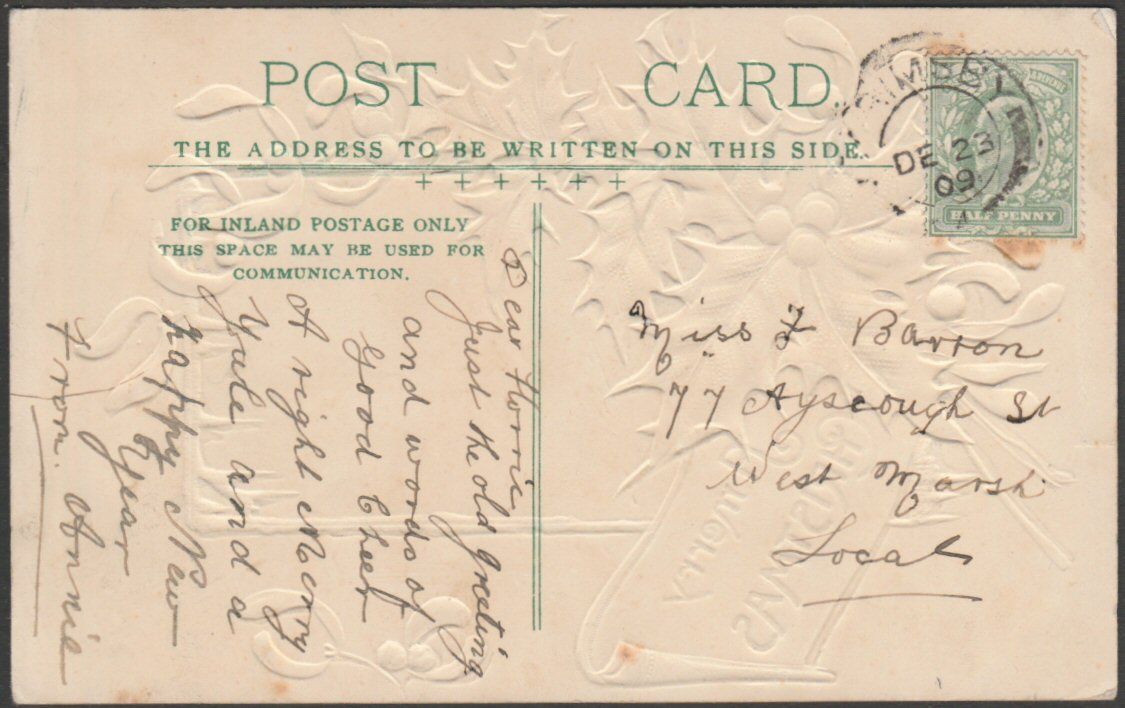 POST CARD
THE ADDRESS TO BE WRITTEN ON THIS SIDE.
FOR INLAND POSTAGE ONLY
THIS SPACE MAY BE USED FOR
COMMUNICATION.
Dear Florrie
Just the old greeting
and words of
Good Cheer
A right Merry
Yule and a
happy New
Year
From. Annie
Miss F Barron
77 Ayscough St
West Marsh
Local
DE 23
09
HALF PENNY
A MERRY
CHRISTMAS